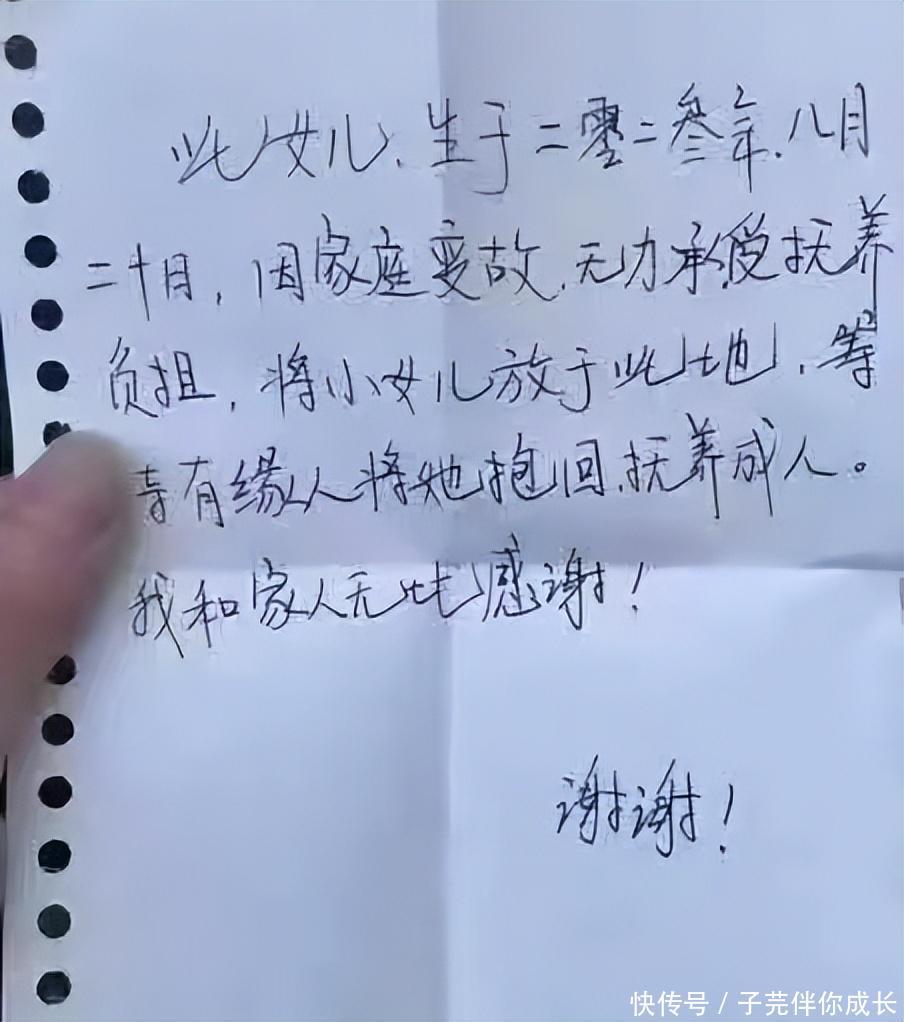 此女儿、生于二零二叁年、八月
二十月，因家庭变故、无力承受抚养
负担，将小女儿放于此地、等
待有缘人将她抱回、抚养成人。
我和家人无比感谢！
谢谢！
快传号 / 子芫伴你成长